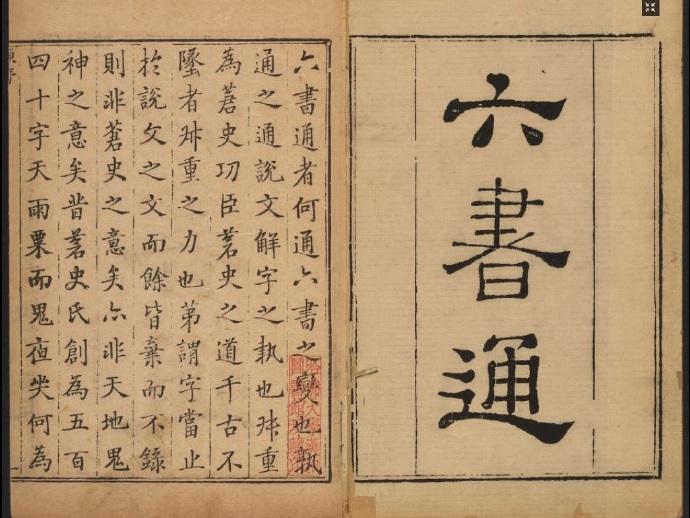 六書通
六書通者何通六書之變也孰
通之通說文解字之孰也叔重
為蒼史功臣蒼史之道千古不
墜者叔重之力也第謂字當止
於說文之文而餘皆棄而不錄
則非蒼史之意矣亦非天地鬼
神之意矣昔蒼史氏創為五百
四十字天雨粟而鬼夜哭何為